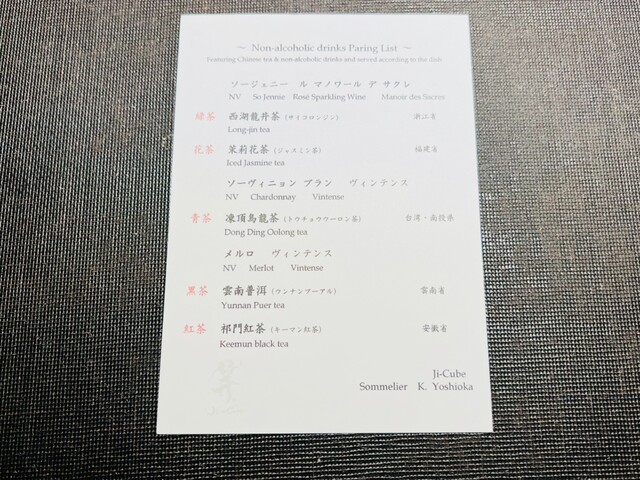 ～ Non-alcoholic drinks Paring List ～
Featuring Chinese tea & non-alcoholic drinks and served according to the dish
ソージェニー ル マノワール デ サクレ
NV So Jennie Rosé Sparkling Wine Manoir des Sacres
緑茶 西湖龍井茶（サイコロンジン） 浙江省
Long-jin tea
花茶 茉莉花茶（ジャスミン茶） 福建省
Iced Jasmine tea
ソーヴィニョン ブラン ヴィンテンス
NV Chardonnay Vintense
青茶 凍頂烏龍茶（トウチョウウーロン茶） 台湾・南投県
Dong Ding Oolong tea
メルロ ヴィンテンス
NV Merlot Vintense
黒茶 雲南普洱（ウンナンプーアル） 雲南省
Yunnan Puer tea
紅茶 祁門紅茶（キーマン紅茶） 安徽省
Keemun black tea
Ji-Cube
Sommelier K. Yoshioka